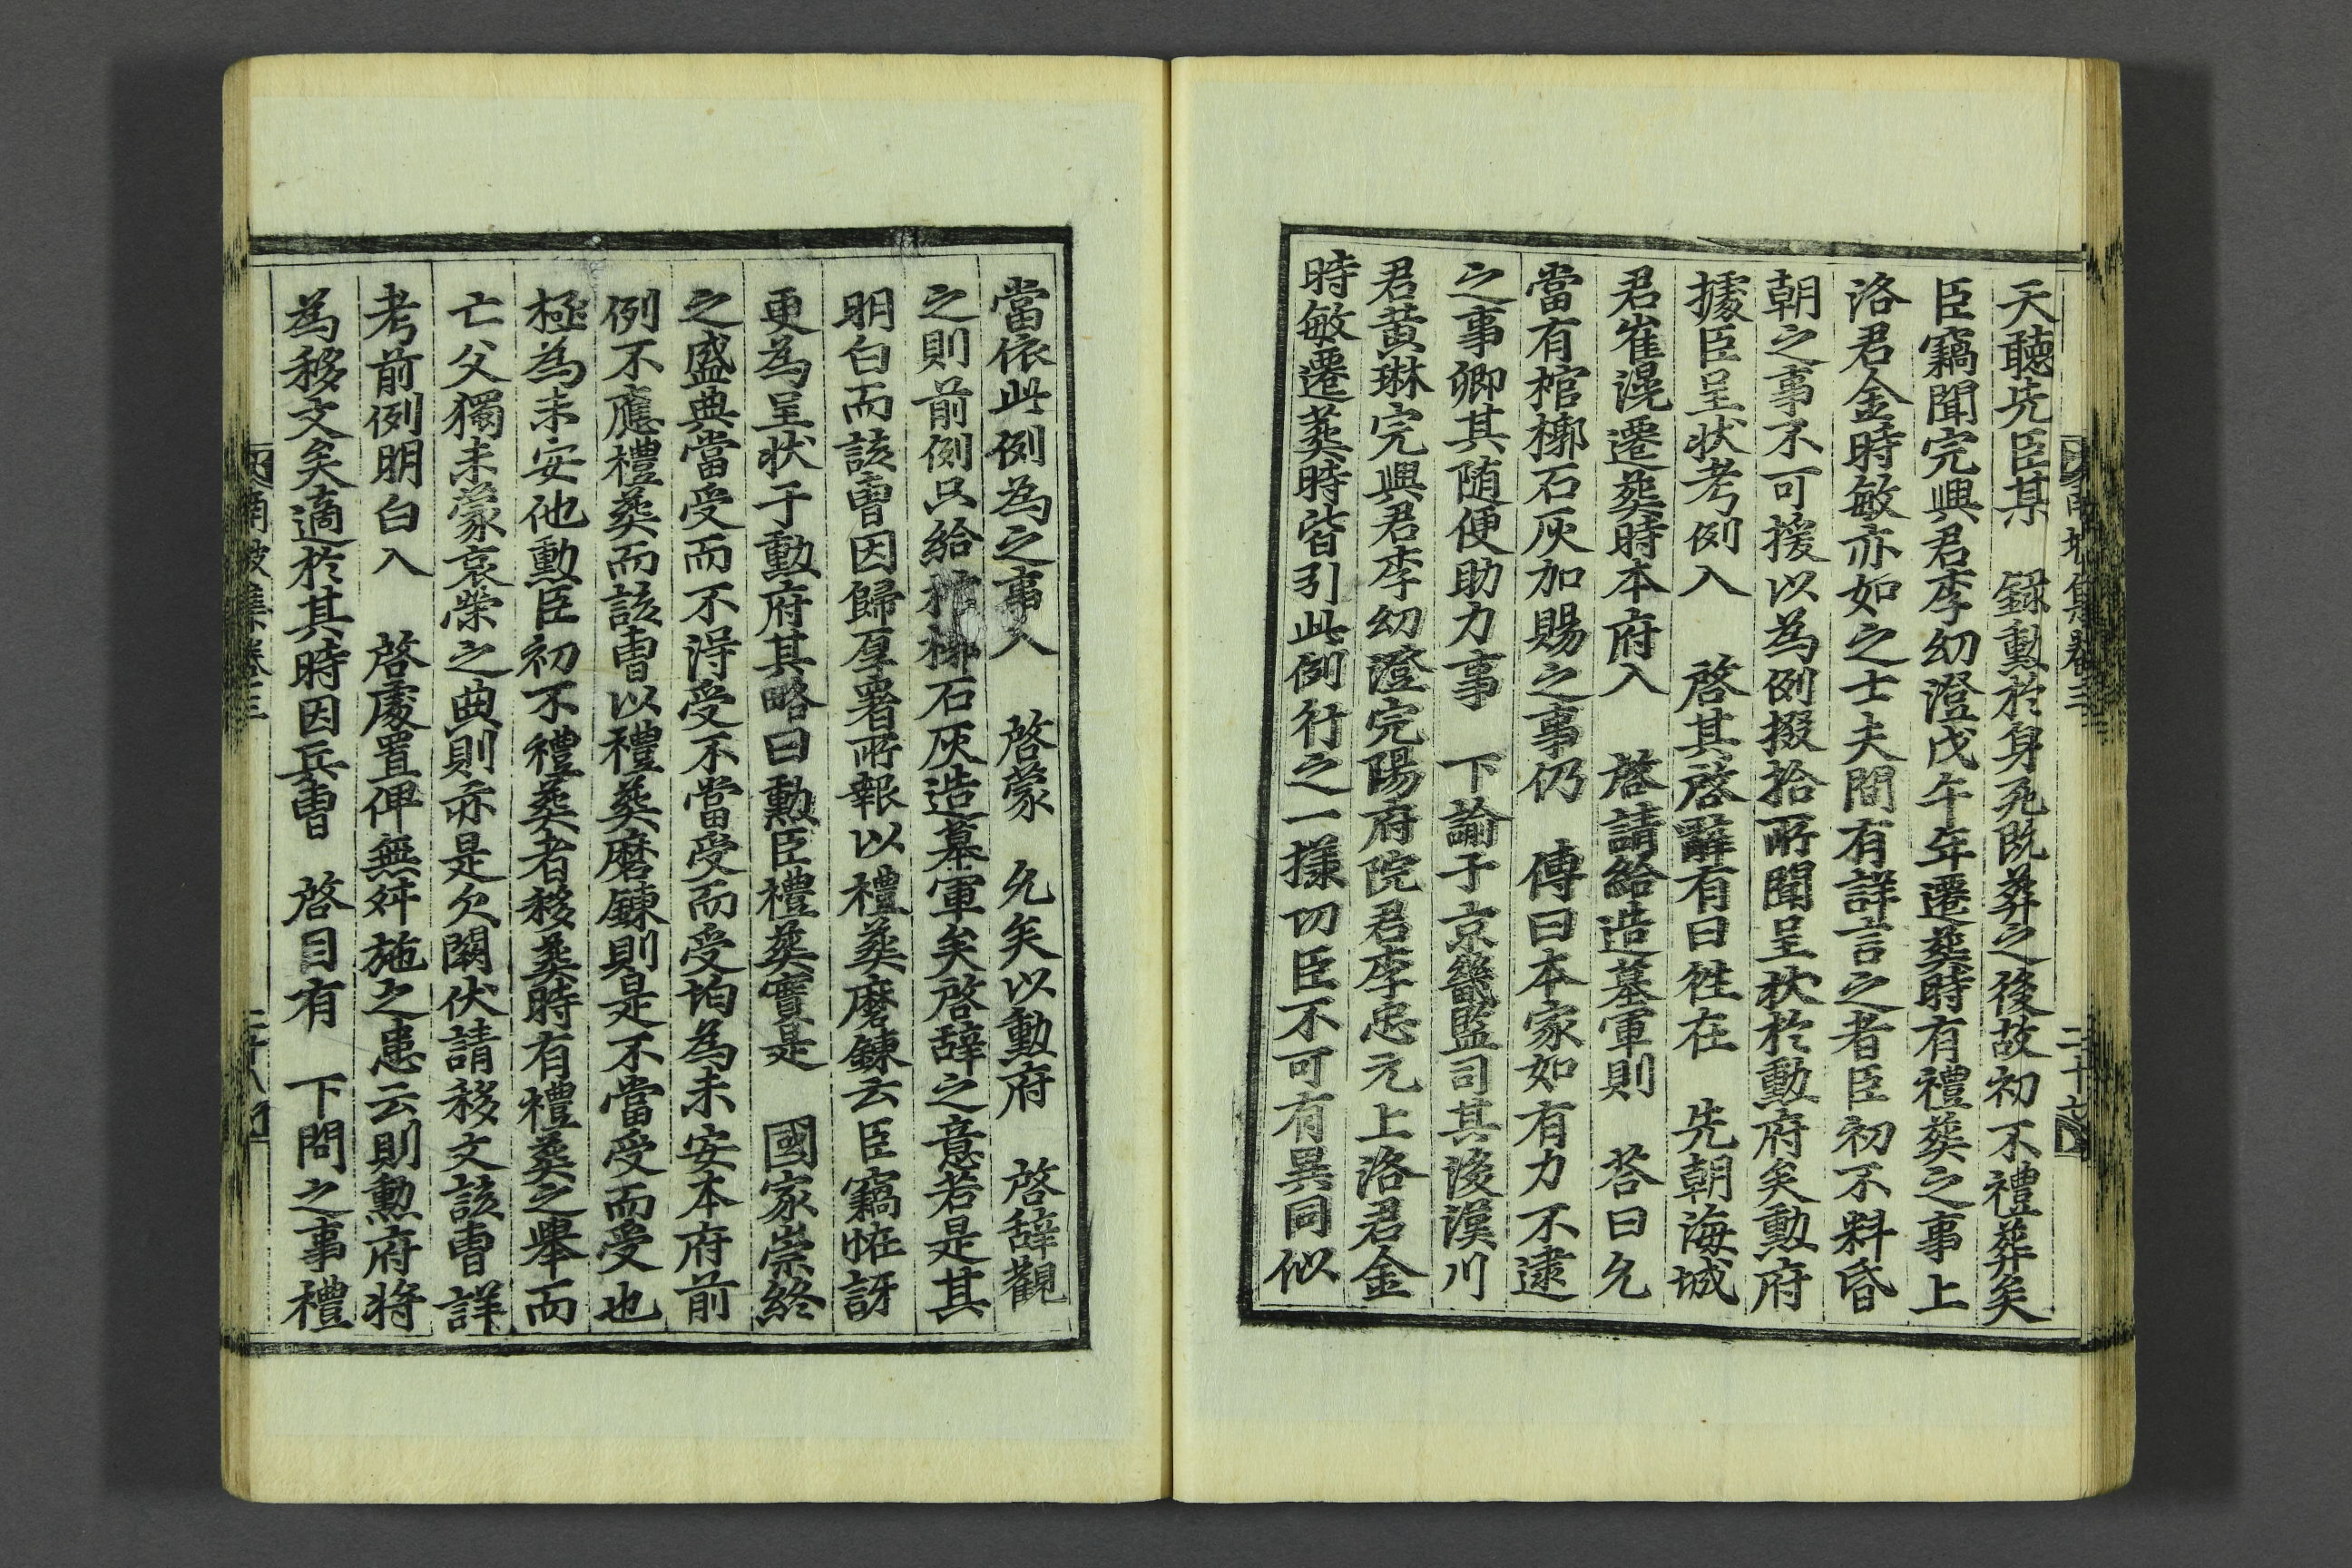 天聽先臣某 錄勳於身死既葬之後故初不禮葬矣
臣竊聞完興君李幼澄戊午年遷葬時有禮葬之事上
洛君金時敏亦如之士夫間有詳言之者臣初不料昏
朝之事不可援以爲例掇拾所聞呈狀於勳府矣勳府
據臣呈狀考例入 啓其啓辭有曰徃在 先朝海城
君崔滉遷葬時本府入 啓請給造墓軍則 答曰允
當有棺槨石灰加賜之事仍 傳曰本家如有力不逮
之事卿其随便助力事 下諭于京畿監司其後漢川
君黃琳完興君李幼澄完陽府院君李忠元上洛君金
時敏遷葬時皆引此例行之一㨾切臣不可有異同似
當依此例爲之事入 啓蒙 允矣以勳府 啓辭觀
之則前例只給棺槨石灰造墓軍矣啓辞之意若是其
明白而該曺因歸厚署所報以禮葬磨鍊云臣竊恠訝
更爲呈狀于勳府其略曰勳臣禮葬實是 國家崇終
之盛典當受而不得受不當受而受均爲未安本府前
例不應禮葬而該曺以禮葬磨鍊則是不當受而受也
極爲未安他勳臣初不禮葬者移葬時有禮葬之擧而
亡父獨未蒙哀榮之典則亦是欠闕伏請移文該曺詳
考前例明白入 啓處置俾無舛施之患云則勳府將
爲移文矣適於其時因兵曺 啓目有 下問之事禮